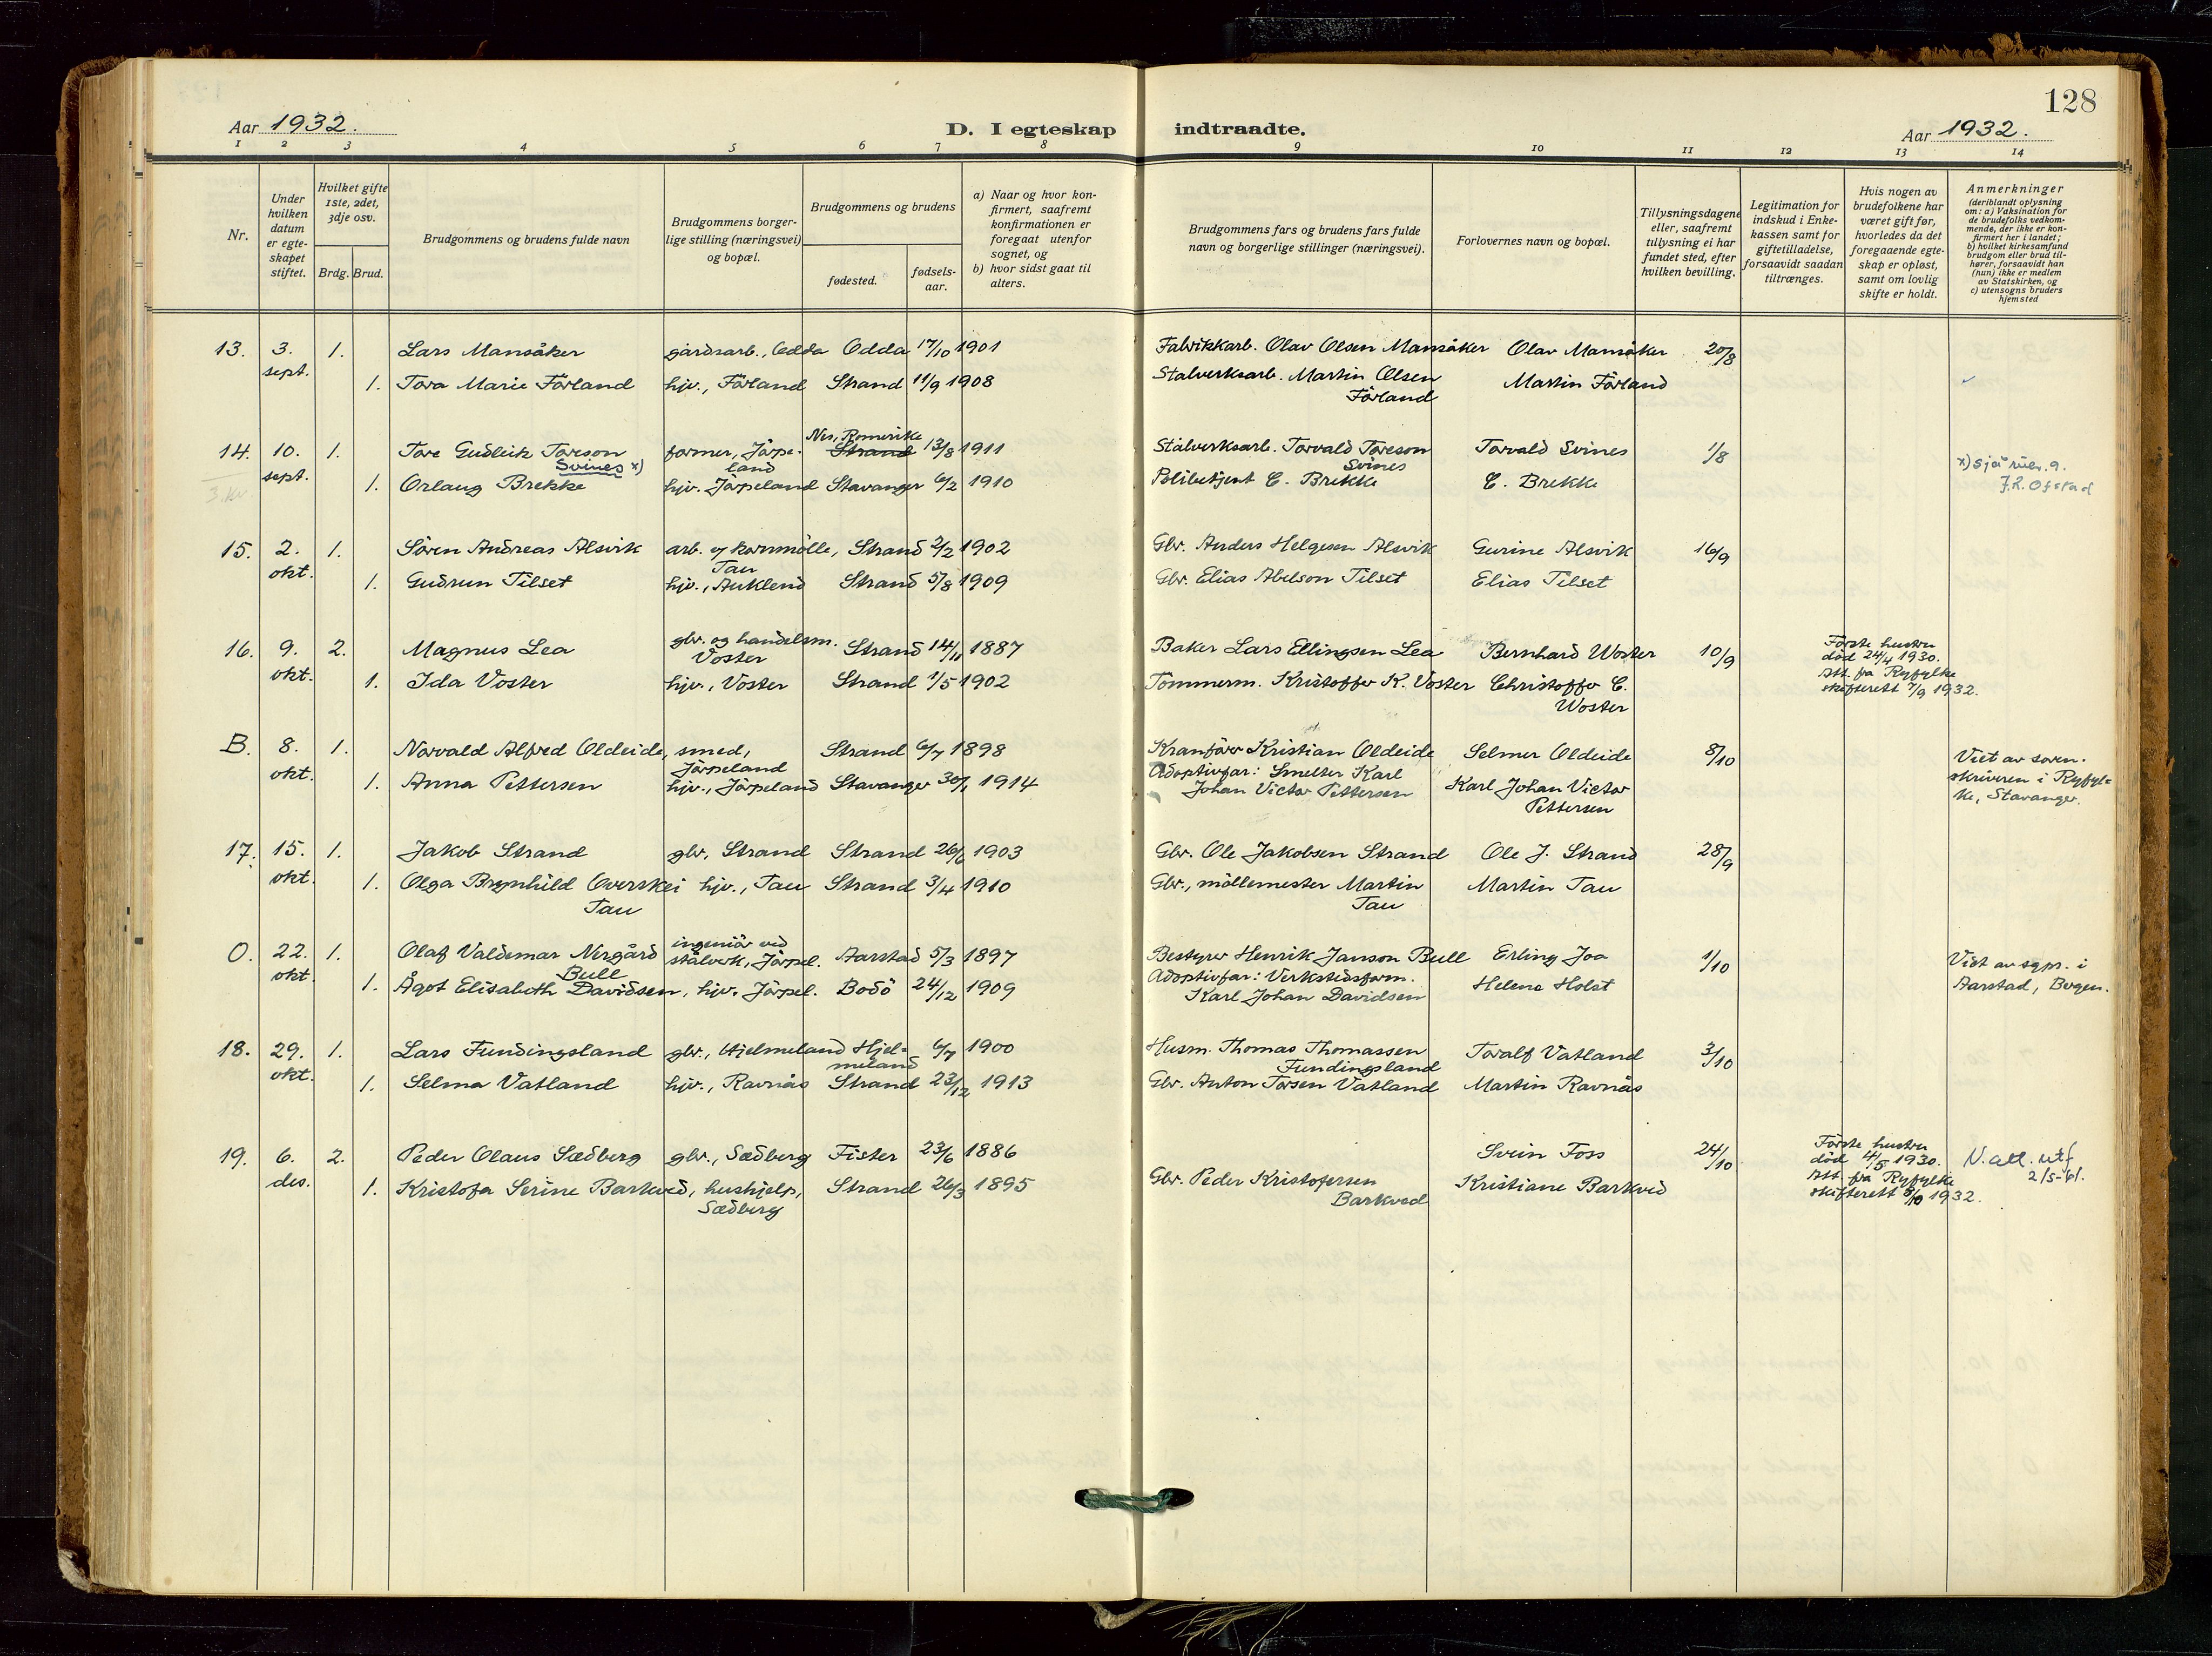 128
Aar 1932.
D. I egteskap indtraadte.
Aar 1932.
1 2 3 4 5 6 7 8 9 10 11 12 13 14
Nr.
Under hvilken datum er egte-skapet stiftet.
Hvilket gifte 1ste, 2det, 3dje osv.
Brdg. Brud.
Brudgommens og brudens fulde navn
Brudgommens borger-
lige stilling (næringsvei)
og bopæl.
Brudgommens og brudens
fødested.
fødsels-
aar.
a) Naar og hvor kon-
firmert, saafremt
konfirmationen er
foregaat utenfor
sognet, og
b) hvor sidst gaat til
alters.
Brudgommens fars og brudens fars fulde
navn og borgerlige stillinger (næringsvei).
Forlovernes navn og bopæl.
Tillysningsdagene
eller, saafremt
tillysning ei har
fundet sted, efter
hvilken bevilling.
Legitimation for
indskud i Enke-
kassen samt for
giftetilladelse,
forsaavidt saadan
tiltrænges.
Hvis nogen av
brudefolkene har
været gift før,
hvorledes da det
foregaaende egte-
skap er opløst,
samt om lovlig
skifte er holdt.
Anmerkninger
(deriblandt oplysning
om: a) Vaksination for
de brudefolks vedkom-
mende, der ikke er kon-
firmert her i landet;
b) hvilket kirkesamfund
brudgom eller brud til-
hører, forsaavidt han
(hun) ikke er medlem
av Statskirken, og
c) utensogns bruders
hjemsted
13. 3. 1. Lars Mansåker gårdsarb., Odda Odda 17/10 1901 Fabrikkarb. Olav Olsen Mansåker Olav Mansåker 20/8
sept. 1. Tora Marie Förland hjv., Förland Strand 11/9 1908 Stålverksarb. Martin Olsen Martin Förland
Förland
Nes, Romerike
14. 10. 1. Tore Gudleik Toreson former, Jörpe- Strand 13/8 1911 Stålverksarb. Torvald Toreson Torvald Svines 1/8
Svines x) land Svines x) sjå
sept. 1. Orlaug Brekke hjv. Jörpeland Stavanger 6/2 1910 Politibetjent C. Brekke C. Brekke
15. 2. 1. Sören Andreas Alsvik arb. v/ kornmölle, Strand 2/2 1902 Gbr. Anders Helgesen Alsvik Gurine Alsvik 16/9
okt. Tau
1. Gudrun Tilset hjv., Auklend Strand 5/8 1909 Gbr. Elias Abelson Tilset Elias Tilset
16. 9. 2. Magnus Lea gbr. og handelsm. Strand 14/11 1887 Baker Lars Ellingsen Lea Bernhard Woster 10/9 Förste hustru
Voster död 24/4 1930.
okt. 1. Ida Voster hjv., Voster Strand 1/5 1902 Tömmerm. Kristoffer K. Voster Christoffer C. Att. fra Ryfylke
Woster skifterett 7/9 1932.
B. 8. 1. Norvald Alfred Oldeide, smed, Strand 6/7 1898 Kranförer Kristian Oldeide Selmer Oldeide 8/10 Viet av soren-
okt. Jörpeland Adoptivfar: Smelter Karl skriveren i Ryfyl-
1. Anna Pettersen hjv., Jörpeland Stavanger 30/1 1914 Johan Victor Pettersen Karl Johan Victor ke, Stavanger.
Pettersen
17. 15. 1. Jakob Strand gbr, Strand Strand 26/6 1903 Gbr. Ole Jakobsen Strand Ole J. Strand 28/9
okt. 1. Olga Brynhild Overskei hjv., Tau Strand 3/4 1910 Gbr., möllemester Martin Martin Tau
Tau Tau
O. 22. 1. Olaf Valdemar Nergård ingeniör ved Aarstad 5/3 1897 Bestyrer Henrik Janson Bull Erling Joa 1/10 Viet av sgpr. i
Bull stålverk, Jörpel. Adoptivfar: Verkstedsform. Aarstad, Bergen.
okt. 1. Ågot Elisabeth Davidsen, hjv. Jörpel. Bodö 24/12 1909 Karl Johan Davidsen Helene Holst
18. 29. 1. Lars Fundingsland gbr., Hjelmeland Hjel- 6/7 1900 Husm. Thomas Thomassen Toralf Vatland 3/10
meland Fundingsland
okt. 1. Selma Vatland hjv., Ravnås Strand 23/12 1913 Gbr. Anton Torsen Vatland Martin Ravnås
19. 6. 2. Peder Olaus Sedberg gbr., Sedberg Fister 23/6 1886 Svein Foss 24/10 Förste hustru N. att. utf
död 4/5 1930. 2/5-61.
des. 1. Kristofa Serine Barkved, hushjelp, Strand 26/3 1895 Gbr. Peder Kristofersen Kristiane Barkved Att. fra Ryfylke
Sedberg Barkved skifterett 1932.